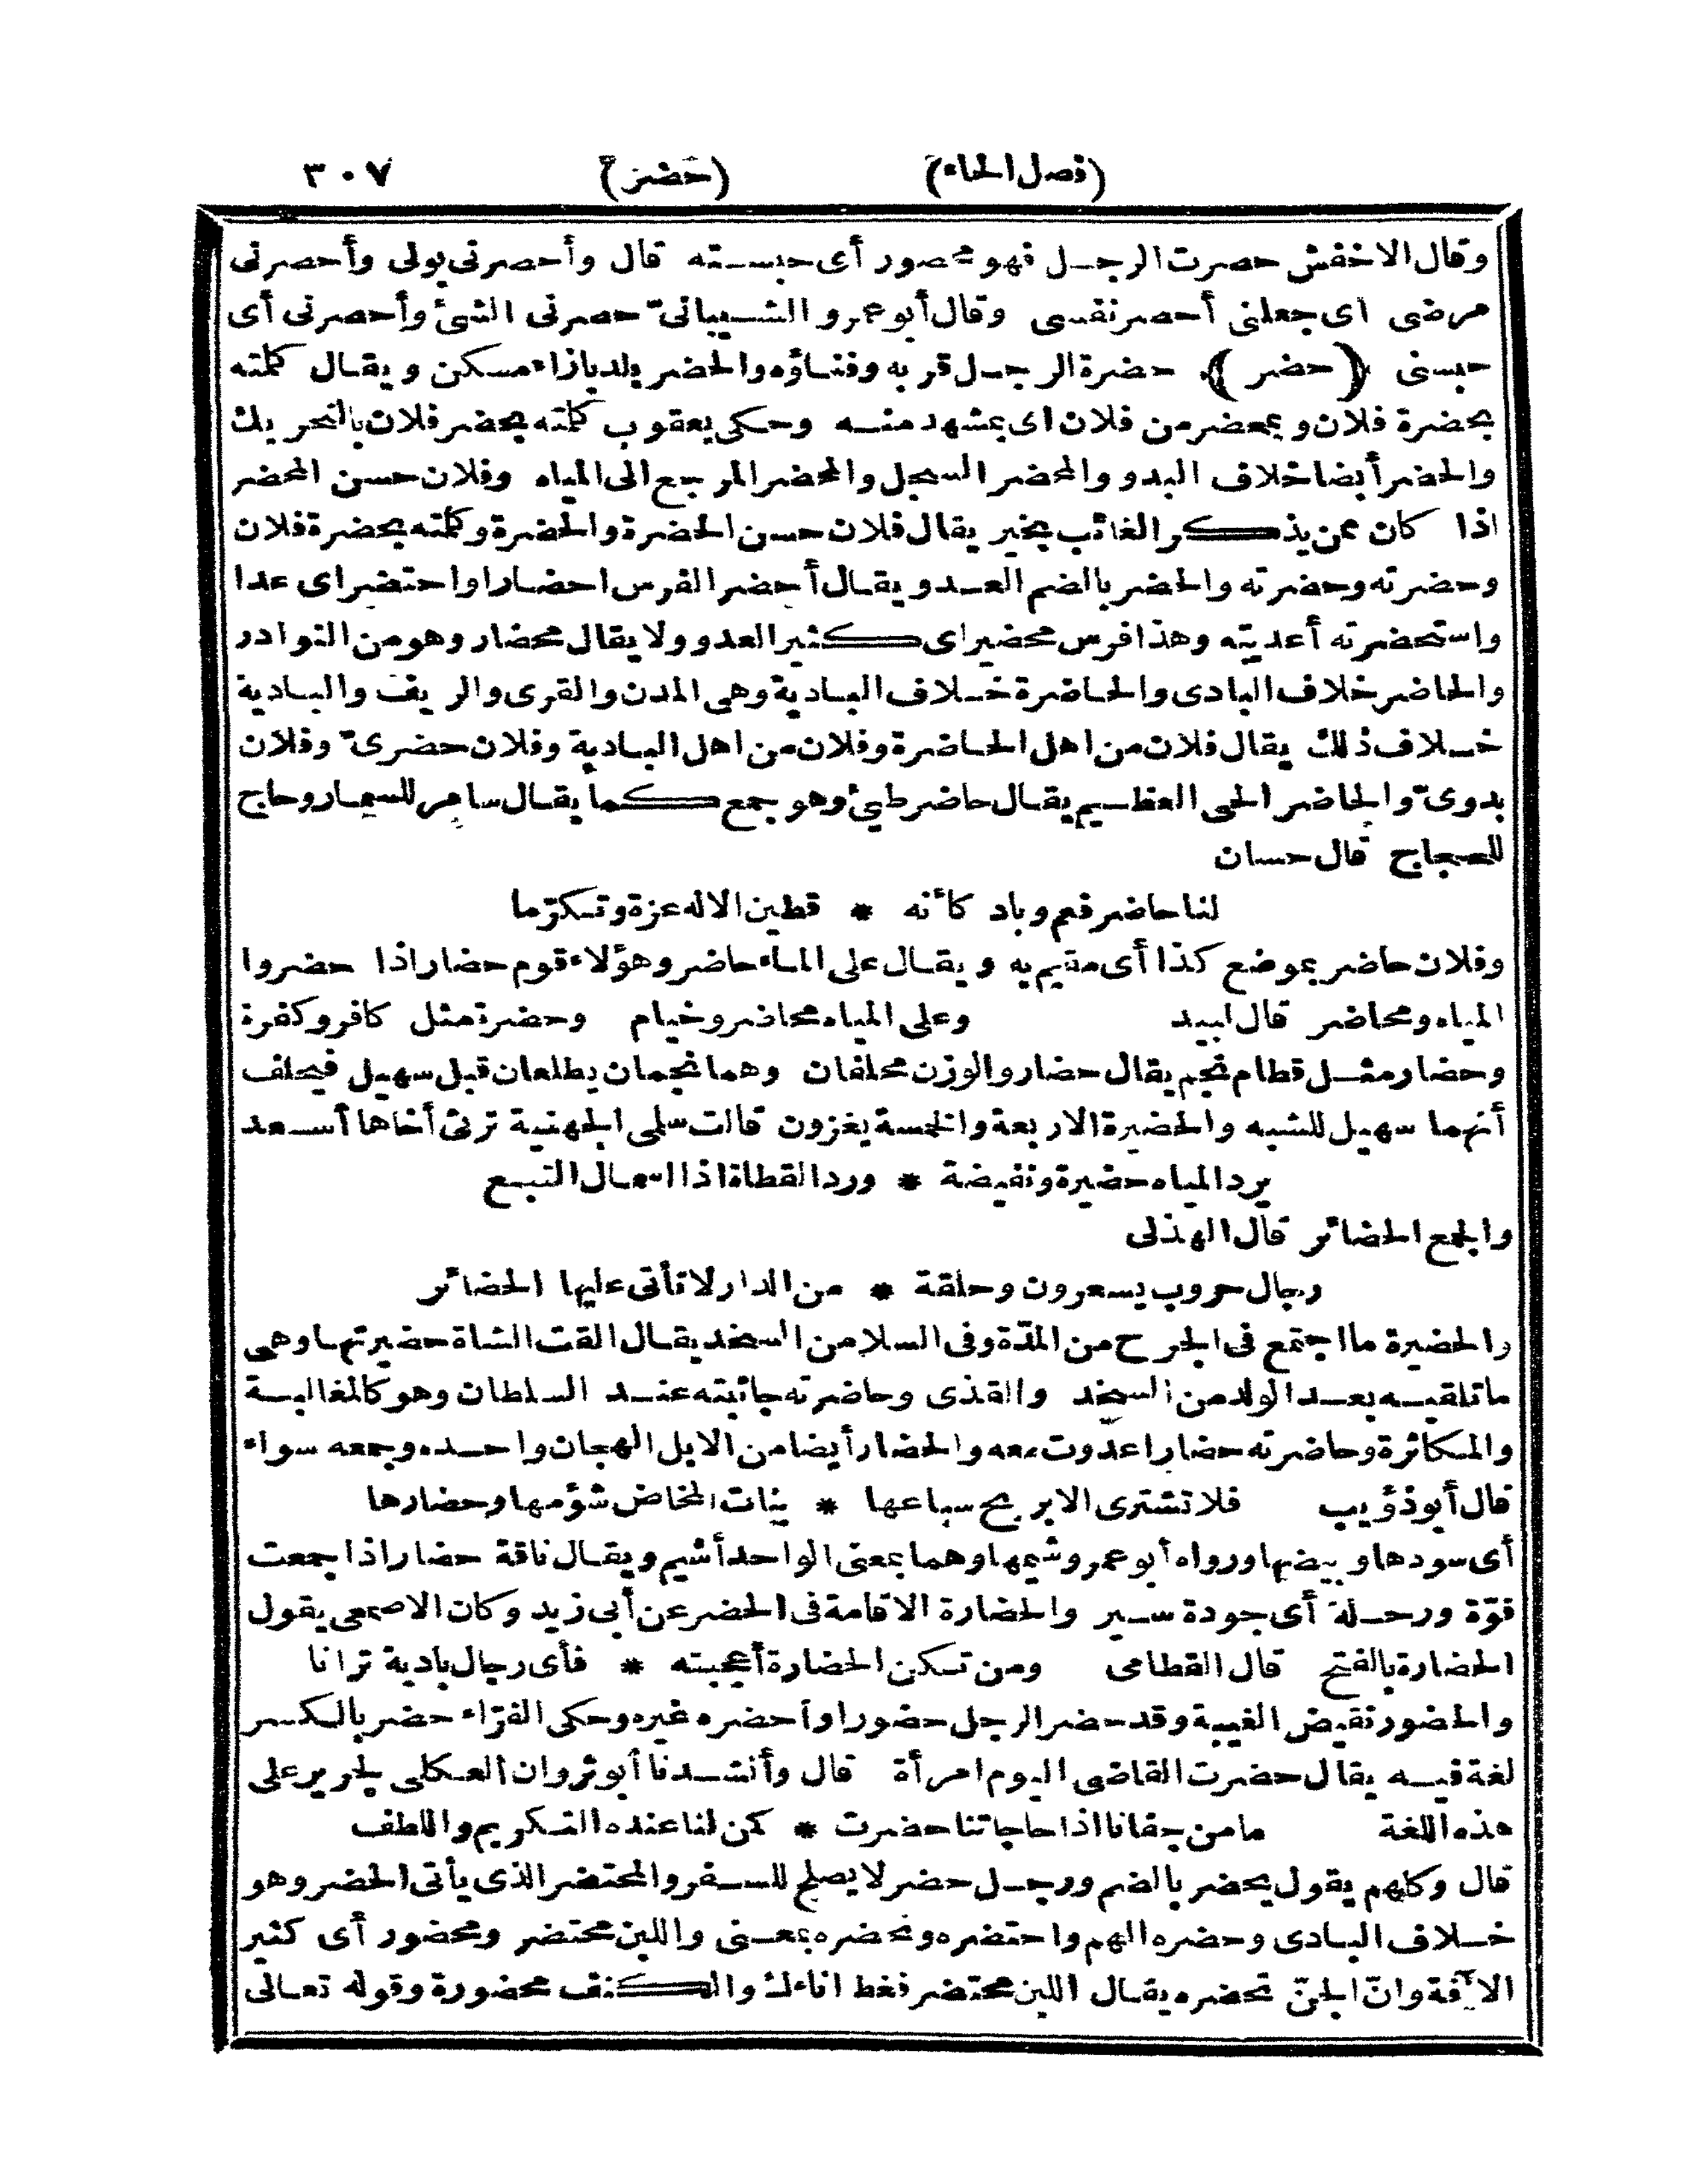 (فصل الحاء) (حضر) ٣٠٧
وقال الاخفش حصرت الرجل فهو محصور أى حبسته قال وأحصرنى بولى وأحصرنى
مرضى اى جعلنى أحصر نفسى وقال أبو عمرو الشيبانىّ حصرنى الشئ وأحصرنى أى
حبسنى ﴿حضر﴾ حضرة الرجل قربه وفناؤه والحضر بلد بازاء مسكن ويقال كلمته
بحضرة فلان وبمحضر من فلان اى بمشهد منه وحكى يعقوب كلمته بحضر فلان بالتحريك
والحضر أيضا خلاف البدو والمحضر السجل والمحضر المرجع الى المياه وفلان حسن المحضر
اذا كان ممن يذكر الغائب بخير يقال فلان حسن الحضرة والحضرة وكلمته بحضرة فلان
وحضرته وحضرته والحضر بالضم العدو يقال أحضر الفرس احضارا واحتضر اى عدا
واستحضرته أعديته وهذا فرس محضير اى كثير العدو ولا يقال محضار وهو من النوادر
والحاضر خلاف البادى والحاضرة خلاف البادية وهى المدن والقرى والريف والبادية
خلاف ذلك يقال فلان من اهل الحاضرة وفلان من اهل البادية وفلان حضرىّ وفلان
بدوىّ والحاضر الحى العظيم يقال حاضر طيئ وهو جمع كما يقال سامر للسمار وحاج
للحجاج قال حسان
لنا حاضر فعم وباد كأنه * قطين الاله عزة وتكرّما
وفلان حاضر بموضع كذا أى مقيم به ويقال على الماء حاضر وهؤلاء قوم حضار اذا حضروا
المياه ومحاضر قال لبيد وعلى المياه محاضر وخيام وحضرة مثل كافر وكفرة
وحضار مثل قطام نجم يقال حضار والوزن محلفان وهما نجمان يطلعان قبل سهيل فيحلف
أنهما سهيل للشبه والحضيرة الاربعة والخمسة يغزون قالت سلمى الجهنية ترثى أخاها أسعد
يرد المياه حضيرة ونفيضة * ورد القطاة اذا اسمأل التبع
والجمع الحضائر قال الهذلى
رجال حروب يسعرون وحلقة * من الدار لا تأتى عليها الحضائر
والحضيرة ما اجتمع فى الجرح من المدّة وفى السلا من السخد يقال القت الشاة حضيرتها وهى
ما تلقيه بعد الولد من السخد والقذى وحاضرته جاثيته عند السلطان وهو كالمغالبة
والمكاثرة وحاضرته حضارا عدوت معه والحضار أيضا من الابل الهجان واحده وجمعه سواء
قال أبو ذؤيب فلا تشترى الا بربح سباعها * بنات المخاض شؤمها وحضارها
أى سودها وبيضها ورواه أبو عمرو شيمها وهما بمعنى الواحد أشيم ويقال ناقة حضار اذا جمعت
قوّة ورحلة أى جودة سير والحضارة الاقامة فى الحضر عن أبى زيد وكان الاصمعى يقول
الحضارة بالفتح قال القطامى ومن تكن الحضارة أعجبته * فأى رجال بادية ترانا
والحضور نقيض الغيبة وقد حضر الرجل حضورا وأحضره غيره وحكى الفرّاء حضر بالكسر
لغة فيه يقال حضرت القاضى اليوم امرأة قال وأنشدنا أبو ثروان العكلى لجرير على
هذه اللغة ما من جفانا اذا حاجاتنا حضرت * كمن لنا عنده التكريم واللطف
قال وكلهم يقول يحضر بالضم ورجل حضر لا يصلح للسفر والمحتضر الذى يأتى الحضر وهو
خلاف البادى وحضره الهم واحتضره وتحضره بمعنى واللبن محتضر ومحضور أى كثير
الآفة وانّ الجنّ تحضره يقال اللبن محتضر فغط اناءك والكنف محضورة وقوله تعالى